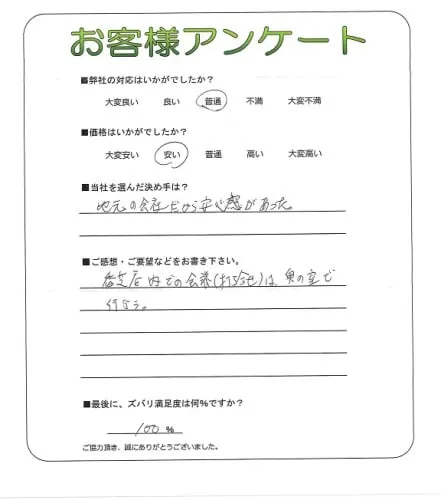 お客様アンケート
■弊社の対応はいかがでしたか?
大変良い 良い 普通 不満 大変不満
■価格はいかがでしたか?
大変安い 安い 普通 高い 大変高い
■当社を選んだ決め手は?
地元の会社だから安心感があった。
■ご感想・ご要望などをお書き下さい。
店内での会議(打合せ)は、奥の室で
行なう。
■最後に、ズバリ満足度は何%ですか?
100 %
ご協力頂き、誠にありがとうございました。